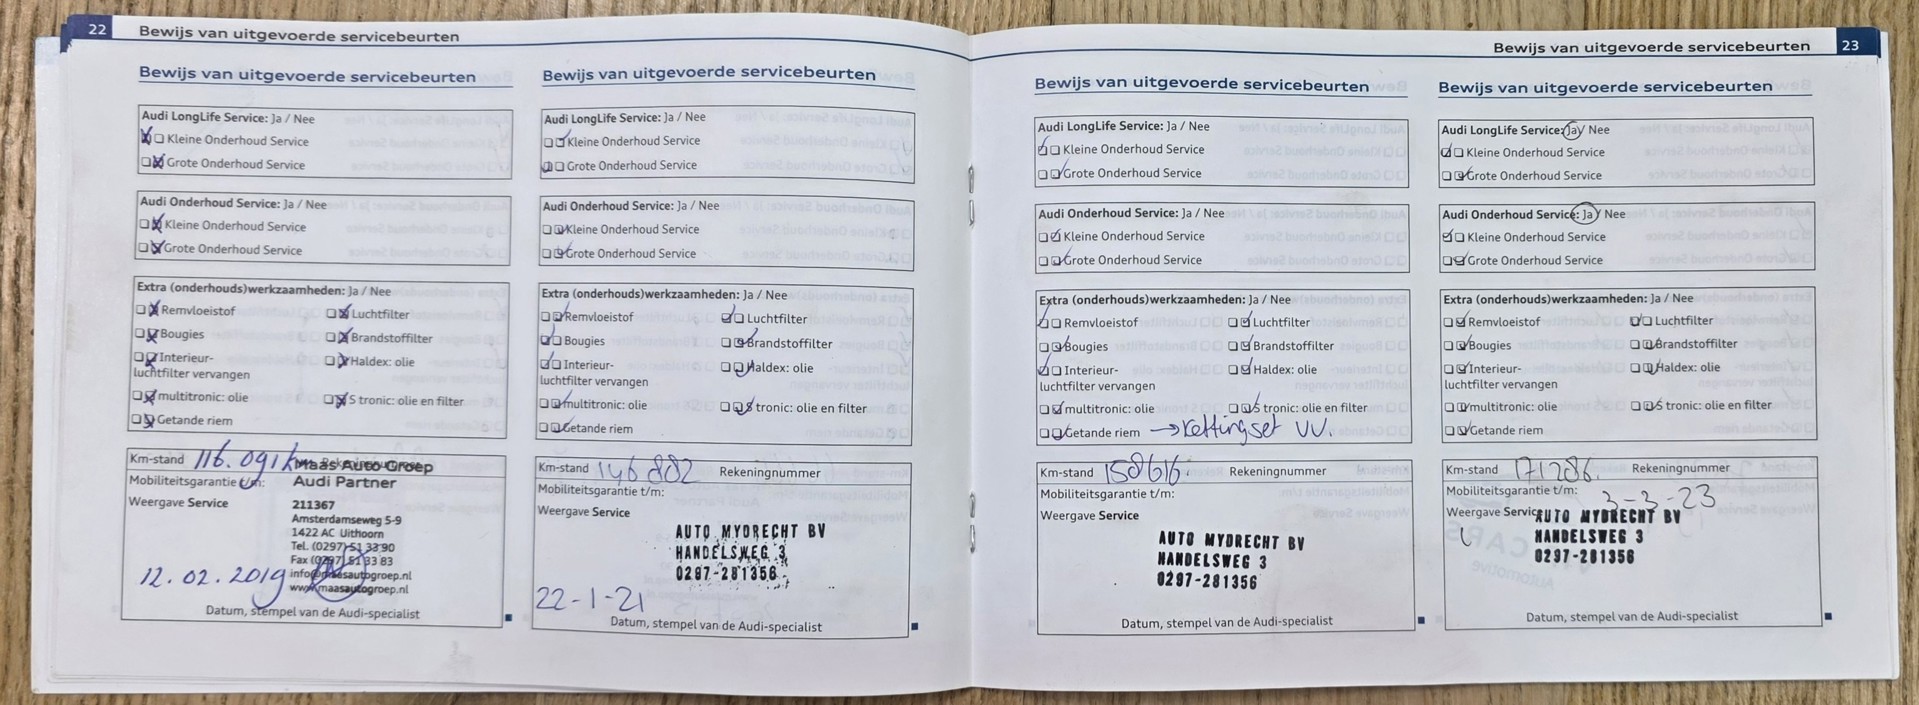 22 Bewijs van uitgevoerde servicebeurten
Bewijs van uitgevoerde servicebeurten
Audi LongLife Service: Ja / Nee
Kleine Onderhoud Service
Grote Onderhoud Service
Audi Onderhoud Service: Ja / Nee
Kleine Onderhoud Service
Grote Onderhoud Service
Extra (onderhouds)werkzaamheden: Ja / Nee
Remvloeistof Luchtfilter
Bougies Brandstoffilter
Interieur- Haldex: olie
luchtfilter vervangen
multitronic: olie S tronic: olie en filter
Getande riem
Km-stand 116.091km
Maas Auto Groep
Mobiliteitsgarantie t/m: Audi Partner
Weergave Service 211367
Amsterdamseweg 5-9
1422 AC Uithoorn
Tel. (0297) 51 33 90
Fax (0297) 51 33 83
12.02.2019 info@maasautogroep.nl
www.maasautogroep.nl
Datum, stempel van de Audi-specialist
Bewijs van uitgevoerde servicebeurten
Audi LongLife Service: Ja / Nee
Kleine Onderhoud Service
Grote Onderhoud Service
Audi Onderhoud Service: Ja / Nee
Kleine Onderhoud Service
Grote Onderhoud Service
Extra (onderhouds)werkzaamheden: Ja / Nee
Remvloeistof Luchtfilter
Bougies Brandstoffilter
Interieur- Haldex: olie
luchtfilter vervangen
multitronic: olie S tronic: olie en filter
Getande riem
Km-stand 146882 Rekeningnummer
Mobiliteitsgarantie t/m:
Weergave Service
AUTO MYDRECHT BV
HANDELSWEG 3
0297-281356
22-1-21
Datum, stempel van de Audi-specialist
Bewijs van uitgevoerde servicebeurten 23
Bewijs van uitgevoerde servicebeurten
Audi LongLife Service: Ja / Nee
Kleine Onderhoud Service
Grote Onderhoud Service
Audi Onderhoud Service: Ja / Nee
Kleine Onderhoud Service
Grote Onderhoud Service
Extra (onderhouds)werkzaamheden: Ja / Nee
Remvloeistof Luchtfilter
Bougies Brandstoffilter
Interieur- Haldex: olie
luchtfilter vervangen
multitronic: olie S tronic: olie en filter
Getande riem → kettingset VV.
Km-stand 158616 Rekeningnummer
Mobiliteitsgarantie t/m:
Weergave Service
AUTO MYDRECHT BV
HANDELSWEG 3
0297-281356
Datum, stempel van de Audi-specialist
Bewijs van uitgevoerde servicebeurten
Audi LongLife Service: Ja / Nee
Kleine Onderhoud Service
Grote Onderhoud Service
Audi Onderhoud Service: Ja / Nee
Kleine Onderhoud Service
Grote Onderhoud Service
Extra (onderhouds)werkzaamheden: Ja / Nee
Remvloeistof Luchtfilter
Bougies Brandstoffilter
Interieur- Haldex: olie
luchtfilter vervangen
multitronic: olie S tronic: olie en filter
Getande riem
Km-stand 171286. Rekeningnummer
Mobiliteitsgarantie t/m: 3-3-23
Weergave Service
AUTO MYDRECHT BV
HANDELSWEG 3
0297-281356
Datum, stempel van de Audi-specialist